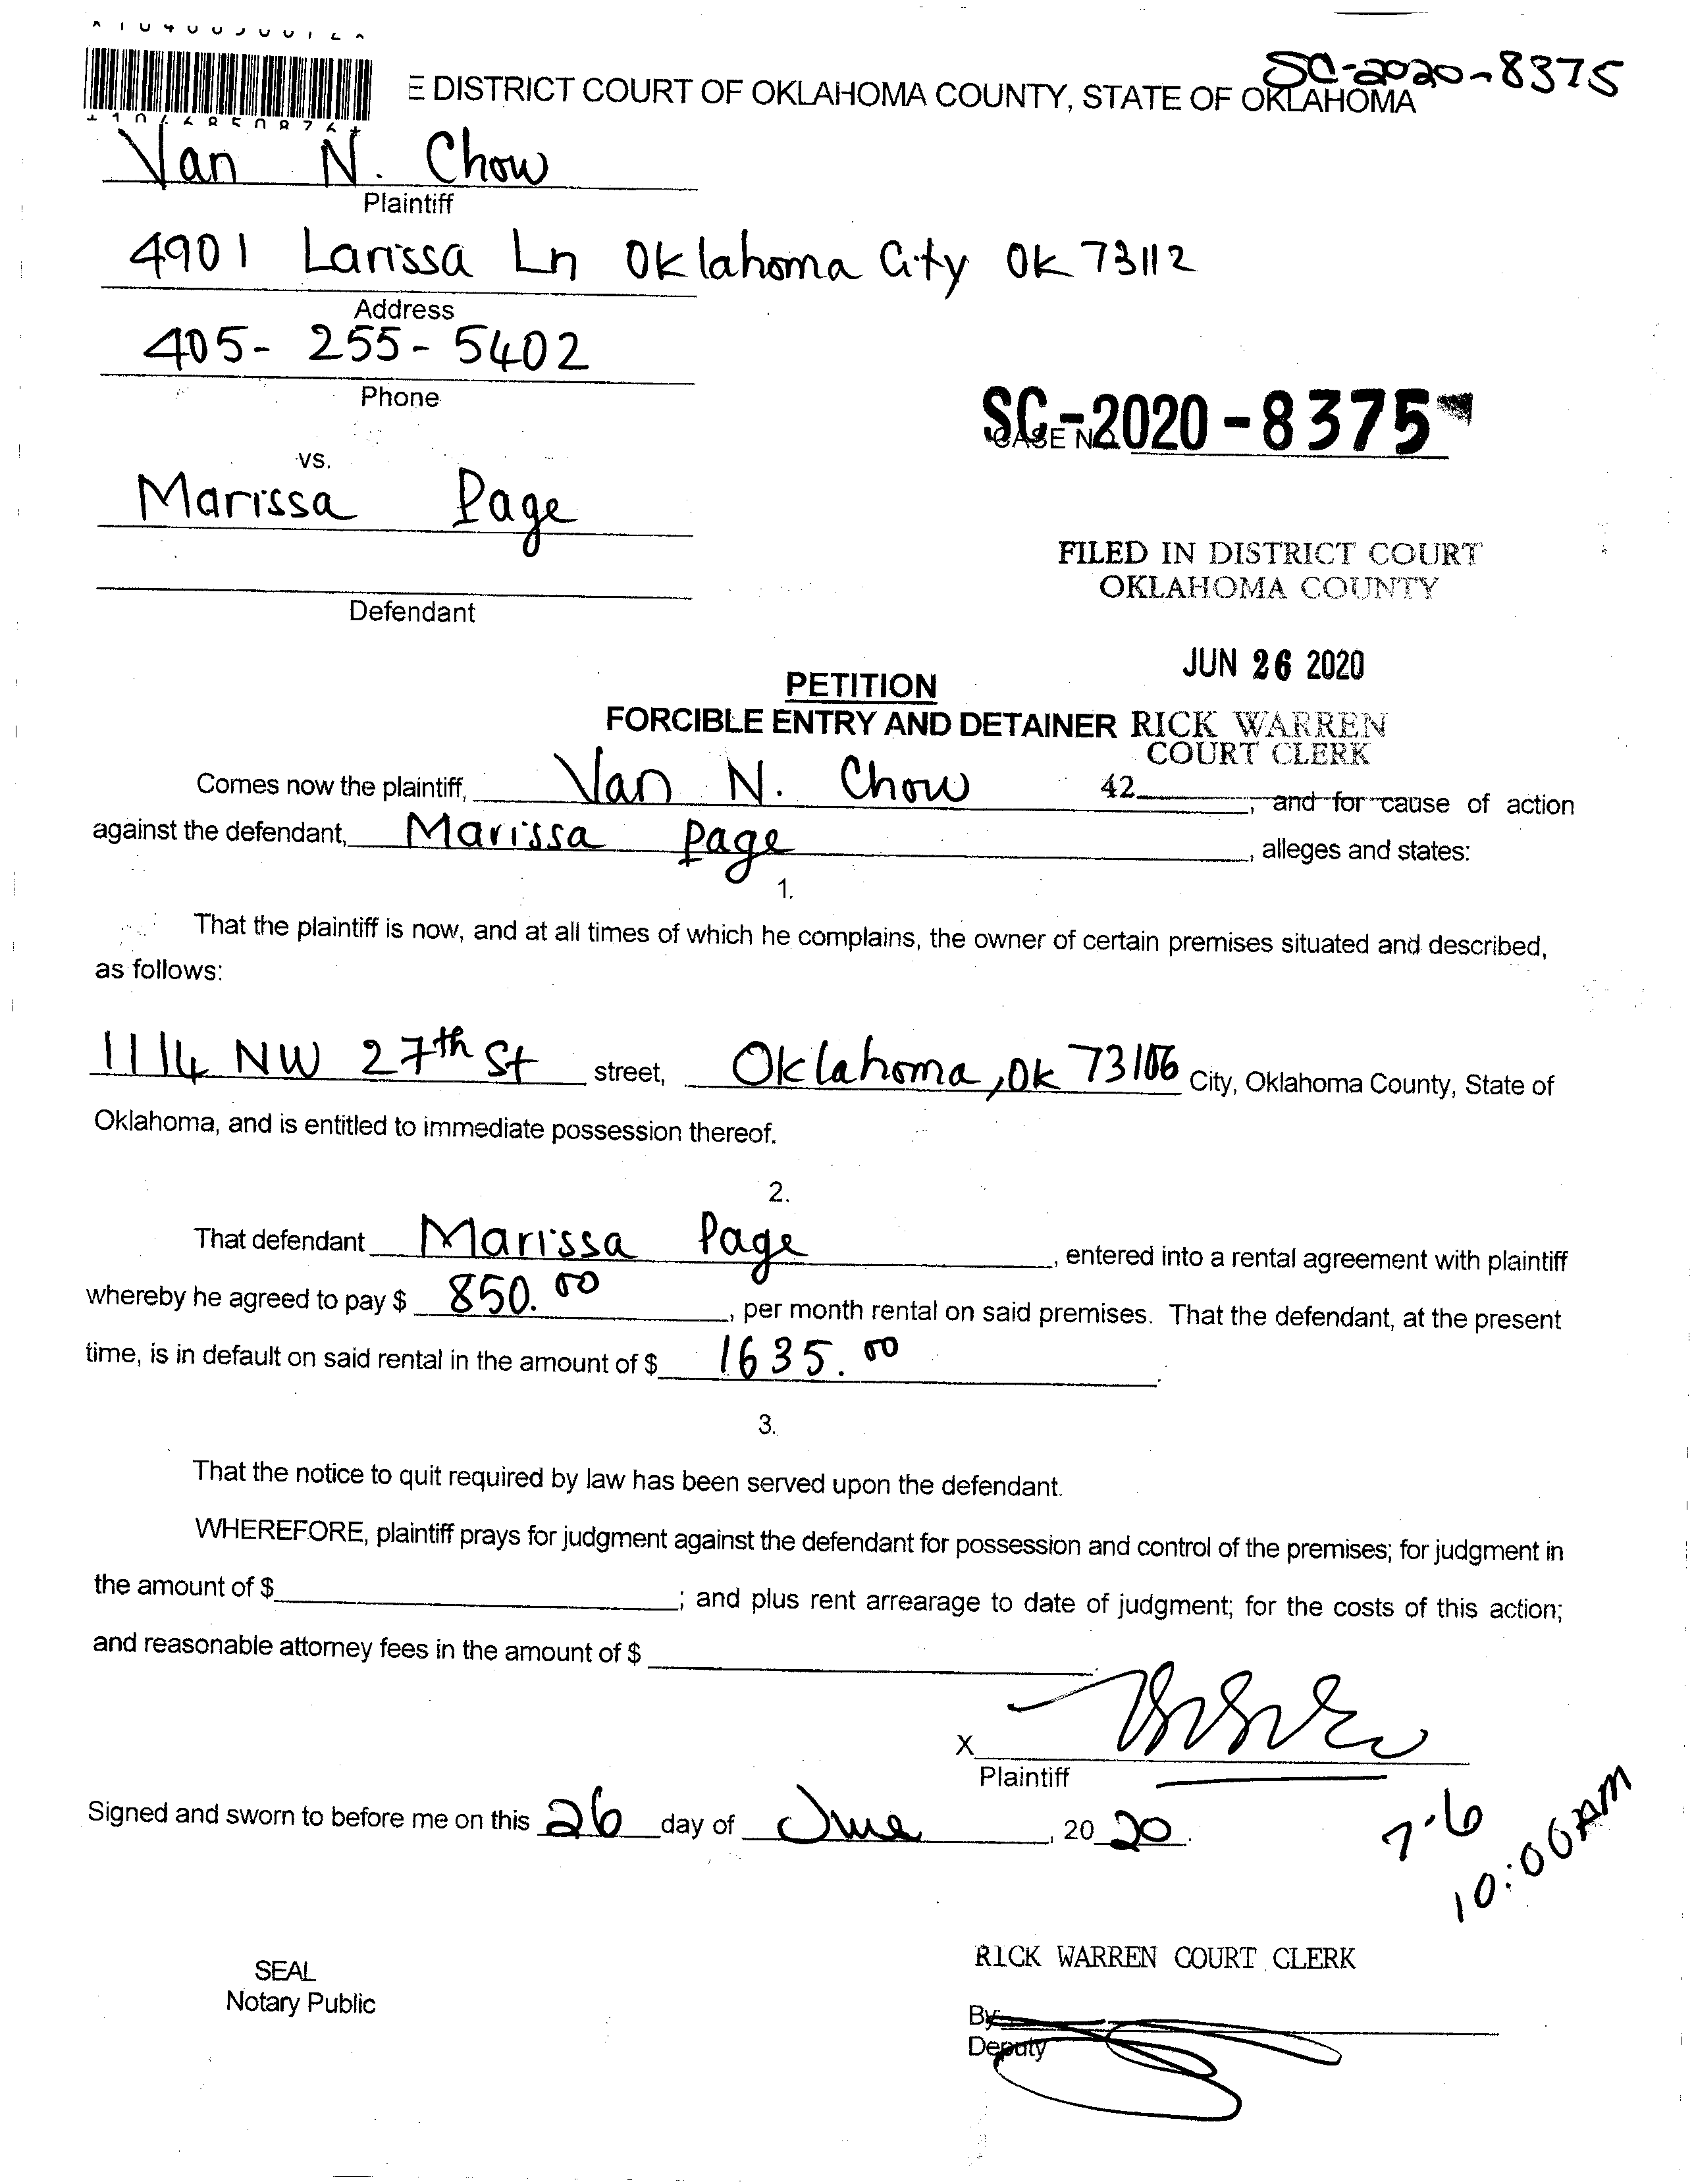 SC-2020-8375
E DISTRICT COURT OF OKLAHOMA COUNTY, STATE OF OKLAHOMA
Van N. Chow
Plaintiff
4901 Larissa Ln Oklahoma City OK 73112
Address
405-255-5402
Phone
SC-2020-8375
CASE NO.
vs.
Marissa Page
FILED IN DISTRICT COURT
OKLAHOMA COUNTY
Defendant
JUN 26 2020
PETITION
FORCIBLE ENTRY AND DETAINER RICK WARREN
COURT CLERK
Comes now the plaintiff, Van N. Chow 42 , and for cause of action
against the defendant, Marissa Page , alleges and states:
1.
That the plaintiff is now, and at all times of which he complains, the owner of certain premises situated and described,
as follows:
1114 NW 27th St street, Oklahoma, OK 73106 City, Oklahoma County, State of
Oklahoma, and is entitled to immediate possession thereof.
2.
That defendant Marissa Page , entered into a rental agreement with plaintiff
whereby he agreed to pay $ 850.00 , per month rental on said premises. That the defendant, at the present
time, is in default on said rental in the amount of $ 1635.00 .
3.
That the notice to quit required by law has been served upon the defendant.
WHEREFORE, plaintiff prays for judgment against the defendant for possession and control of the premises; for judgment in
the amount of $ ; and plus rent arrearage to date of judgment; for the costs of this action;
and reasonable attorney fees in the amount of $ .
X
Plaintiff
Signed and sworn to before me on this 26 day of June , 20 20.
7-6
10:00AM
SEAL
Notary Public
RICK WARREN COURT CLERK
By
Deputy